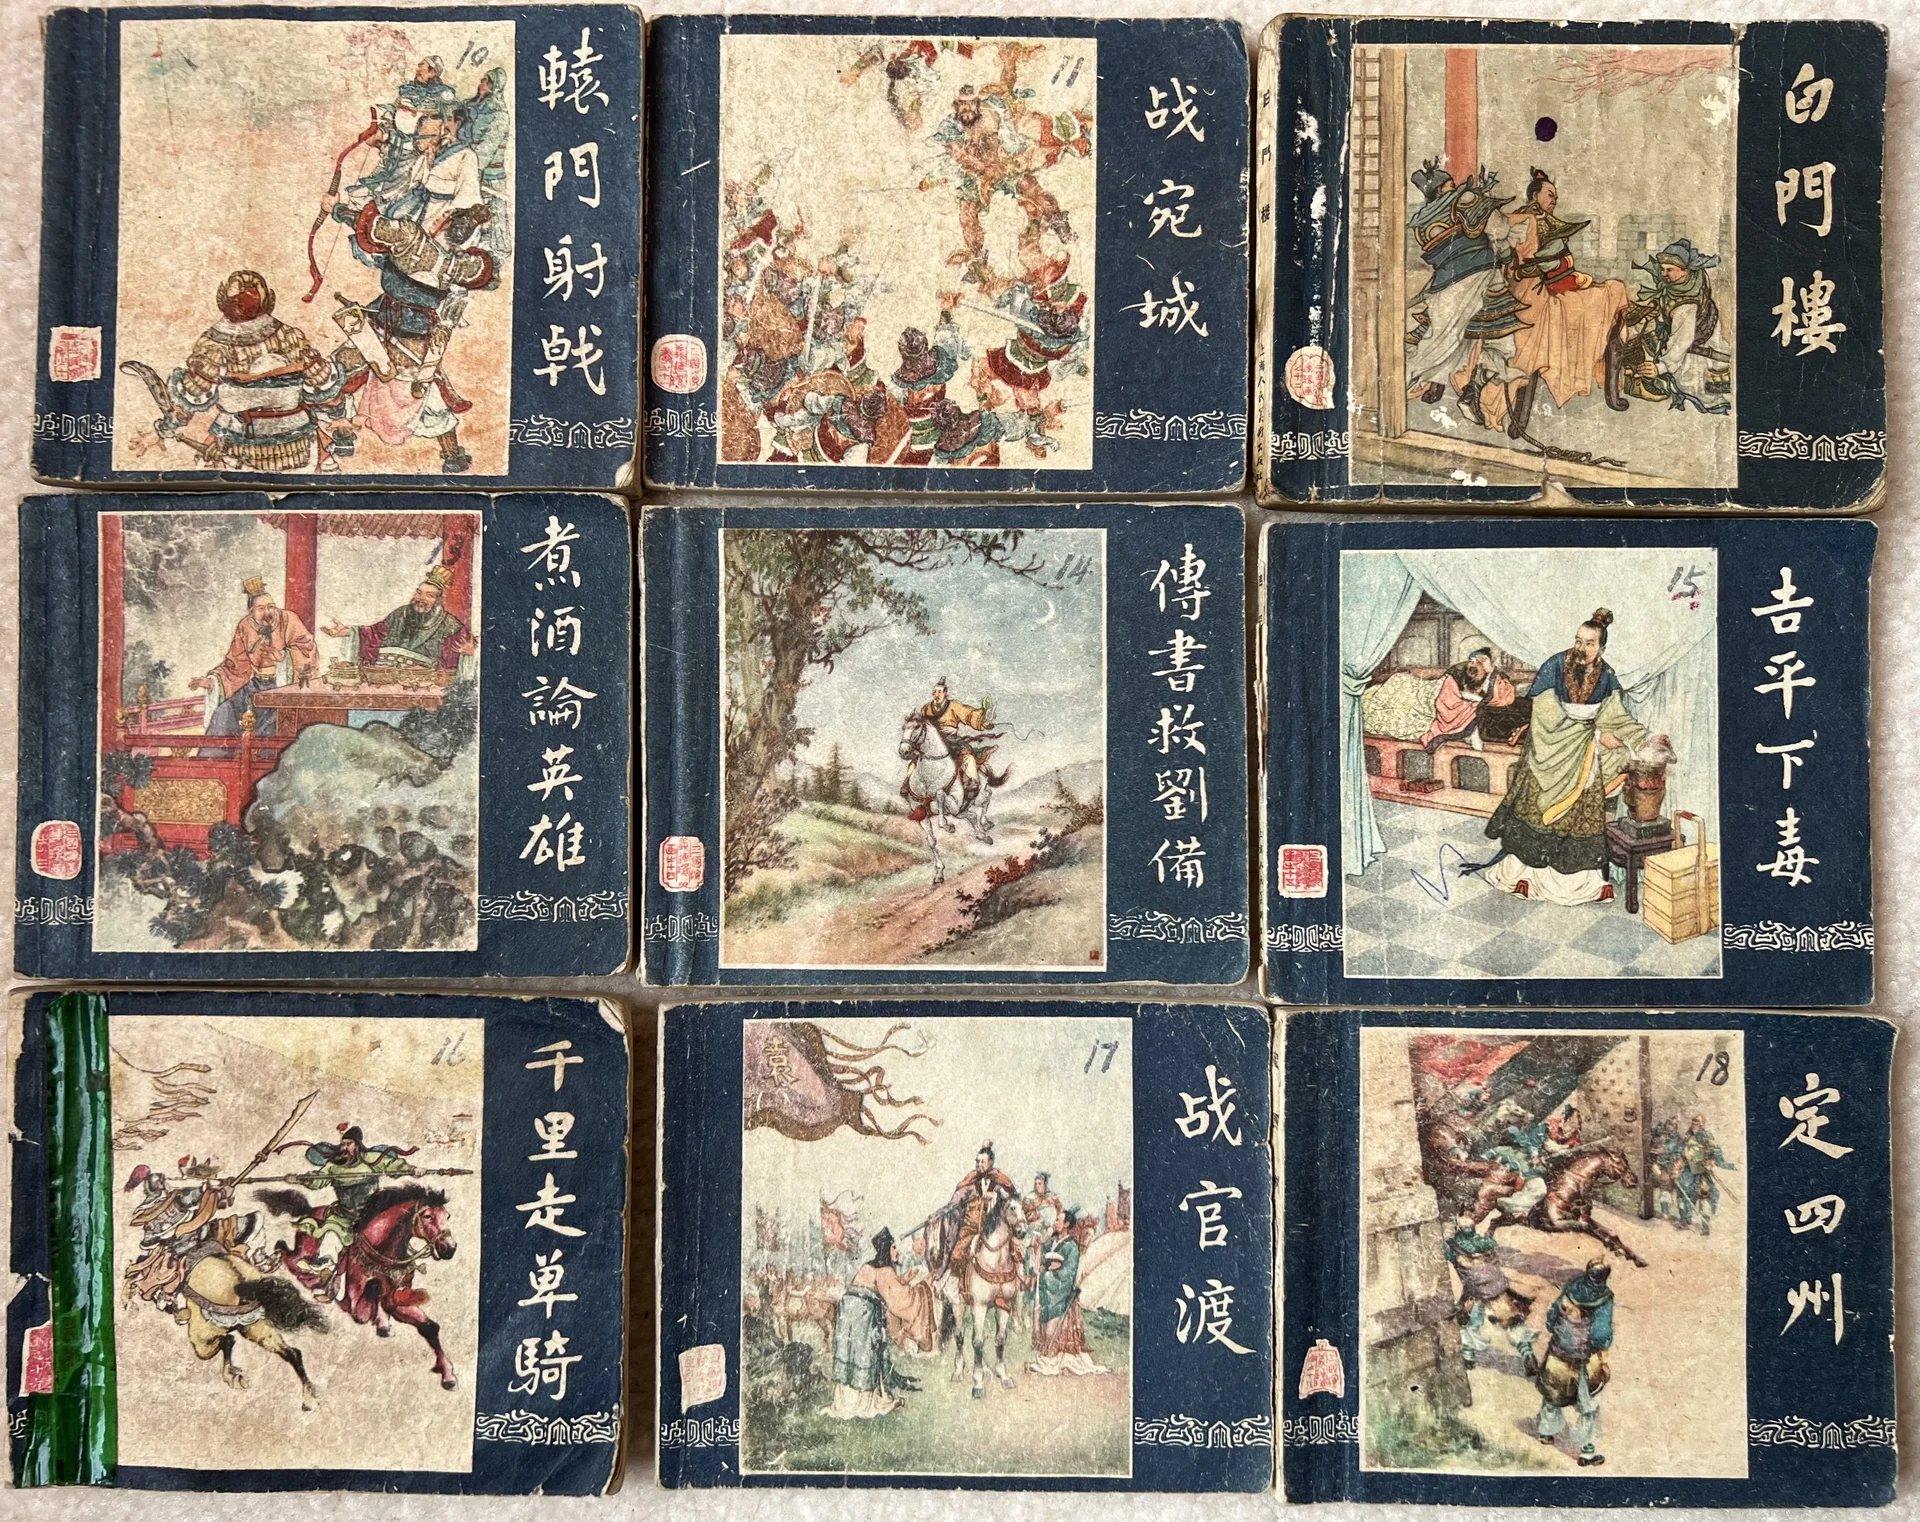 轅門射戟
10
战宛城
11
白門樓
白門楼
煮酒論英雄
13
傳書救劉備
14
吉平下毒
15
千里走单騎
16
战官渡
17
袁
定四州
18